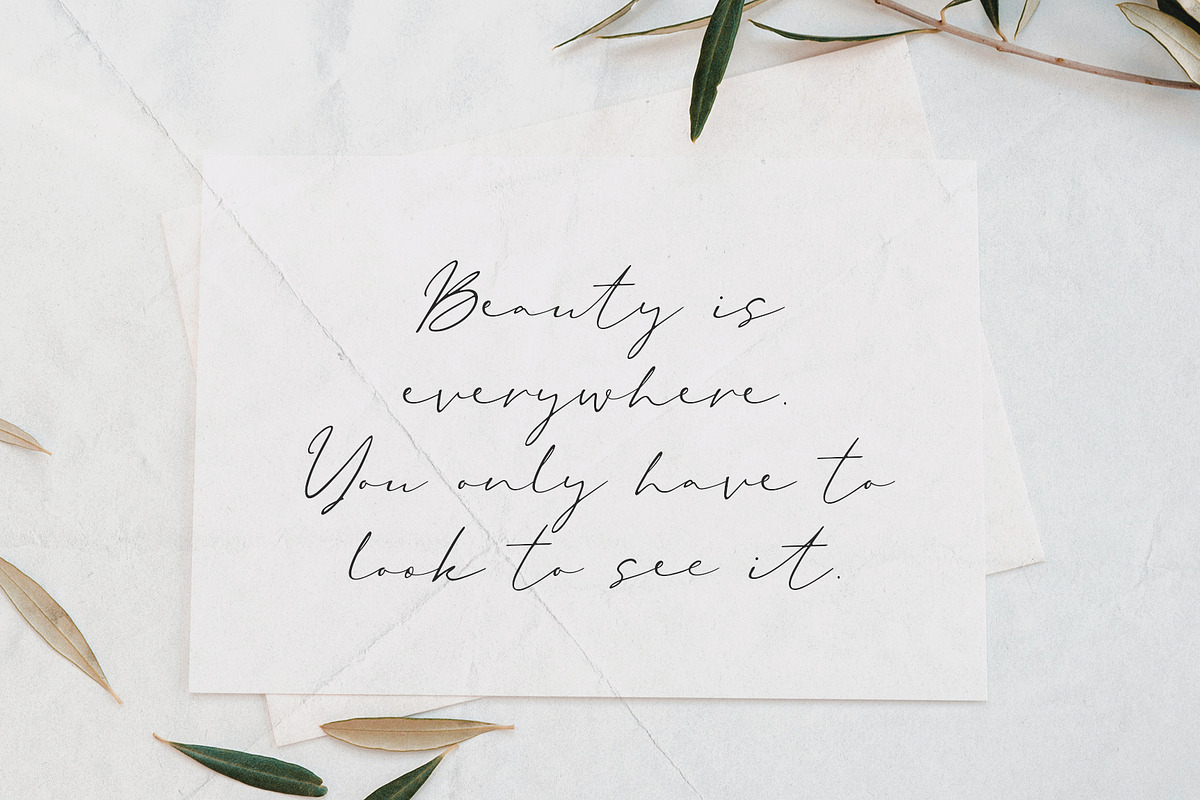 Beauty is
everywhere.
You only have to
look to see it.